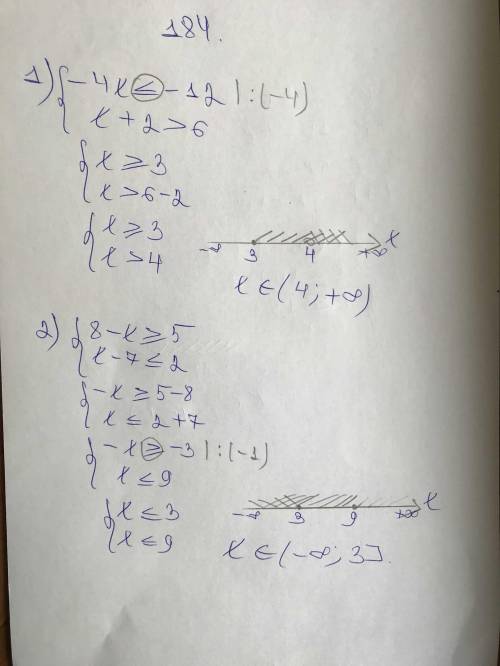 184.
1) { -4x ≤ -12 | : (-4)
x + 2 > 6
{ x ≥ 3
x > 6-2
{ x ≥ 3
x > 4
-∞ 3 4 +∞ x
x ∈ (4; +∞)
2) { 8-x ≥ 5
x-7 ≤ 2
{ -x ≥ 5-8
x ≤ 2+7
{ -x ≥ -3 | : (-1)
x ≤ 9
{ x ≤ 3
x ≤ 9
-∞ 3 9 +∞ x
x ∈ (-∞; 3].